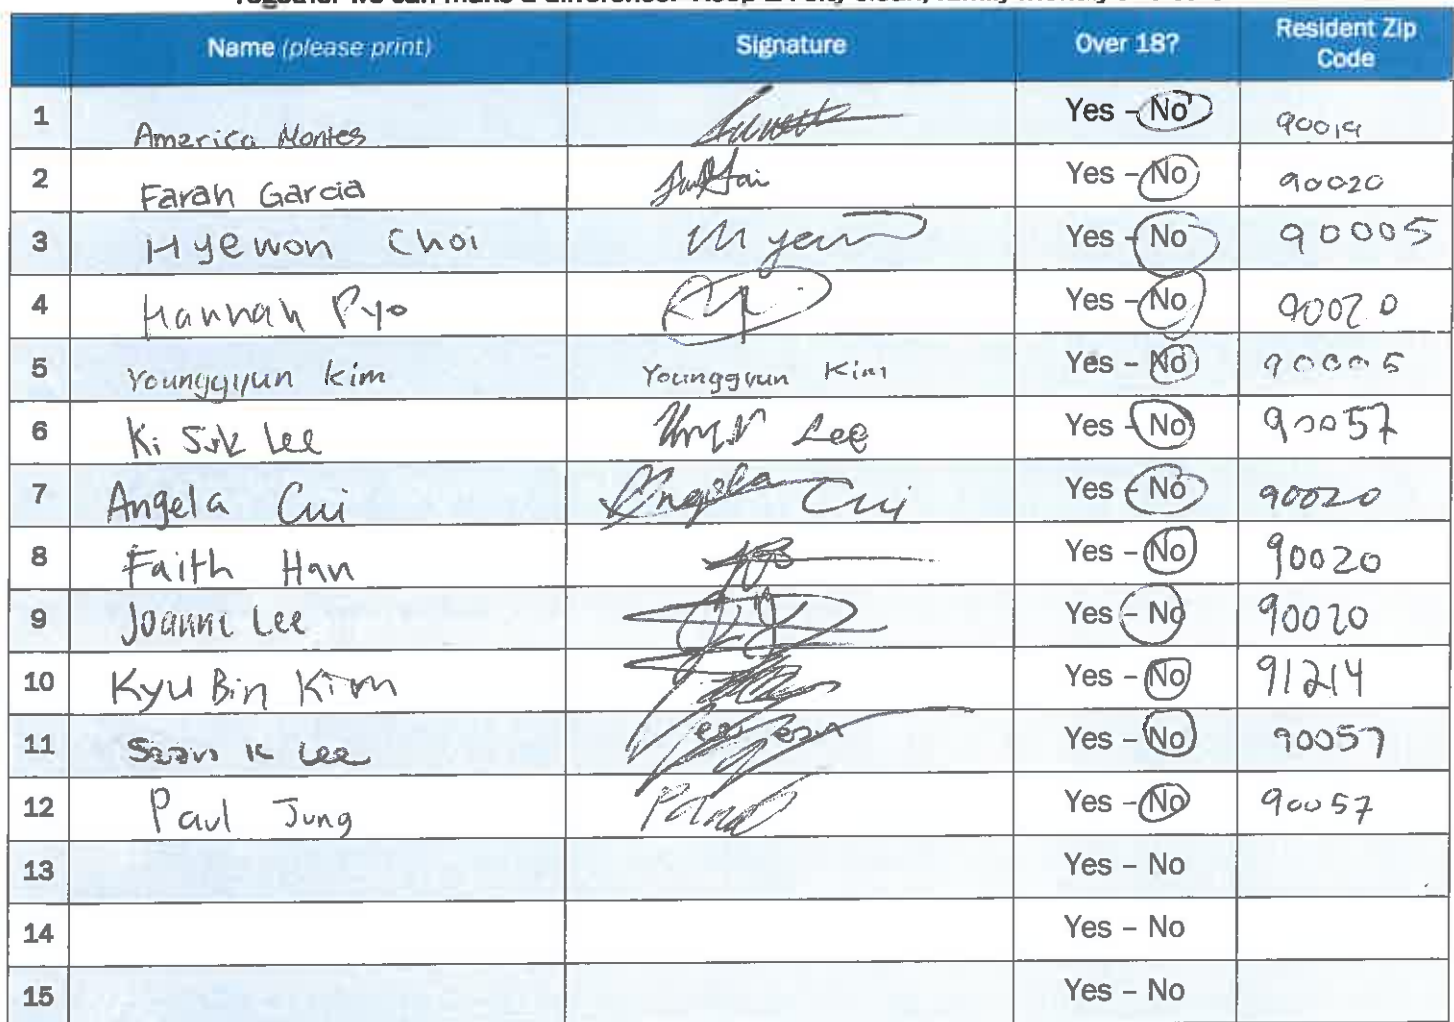 Together we can make a difference!
Name (please print) Signature Over 18? Resident Zip Code
1 America Montes Yes – No 90019
2 Farah Garcia Yes – No 90020
3 Hyewon Choi Yes – No 90005
4 Hannah Pyo Yes – No 90020
5 Younggyun Kim Younggyun Kim Yes – No 90005
6 Ki Sik Lee Lee Yes – No 90057
7 Angela Cui Angela Cui Yes – No 90020
8 Faith Han Yes – No 90020
9 Joanne Lee Yes – No 90020
10 Kyu Bin Kim Yes – No 91214
11 Sean K Lee Yes – No 90057
12 Paul Jung Yes – No 90057
13 Yes – No
14 Yes – No
15 Yes – No